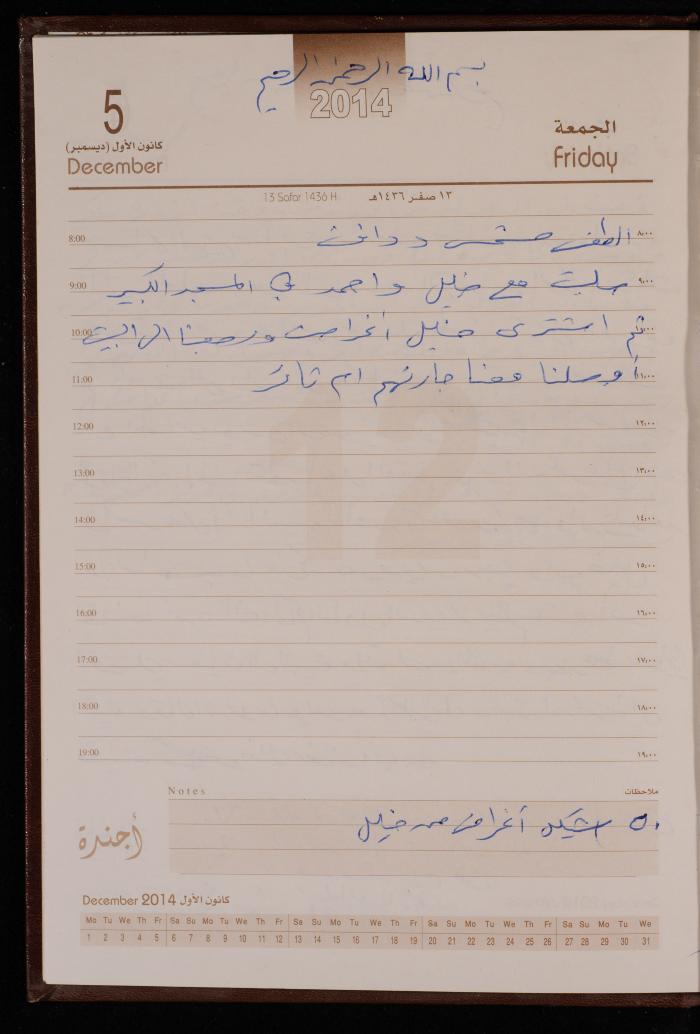 بسم الله الرحمن الرحيم
2014
5
كانون الأول (ديسمبر)
December
الجمعة
Friday
13 Safar 1436 H ١٣ صفر ١٤٣٦هـ
8:00 الطقس مشمس ودافئ ٨:٠٠
9:00 صليت مع خليل واحمد في المسجد الكبير ٩:٠٠
10:00 ثم اشترى خليل أغراض ورجعنا الى البيت ١٠:٠٠
11:00 أوصلنا معنا جارتهم ام ثائر ١١:٠٠
12
12:00 ١٢:٠٠
13:00 ١٣:٠٠
14:00 ١٤:٠٠
15:00 ١٥:٠٠
16:00 ١٦:٠٠
17:00 ١٧:٠٠
18:00 ١٨:٠٠
19:00 ١٩:٠٠
Notes ملاحظات
٥٠ شيكل أغراض من خليل
أجندة
December 2014 كانون الأول
Mo Tu We Th Fr Sa Su Mo Tu We Th Fr Sa Su Mo Tu We Th Fr Sa Su Mo Tu We Th Fr Sa Su Mo Tu We
1 2 3 4 5 6 7 8 9 10 11 12 13 14 15 16 17 18 19 20 21 22 23 24 25 26 27 28 29 30 31